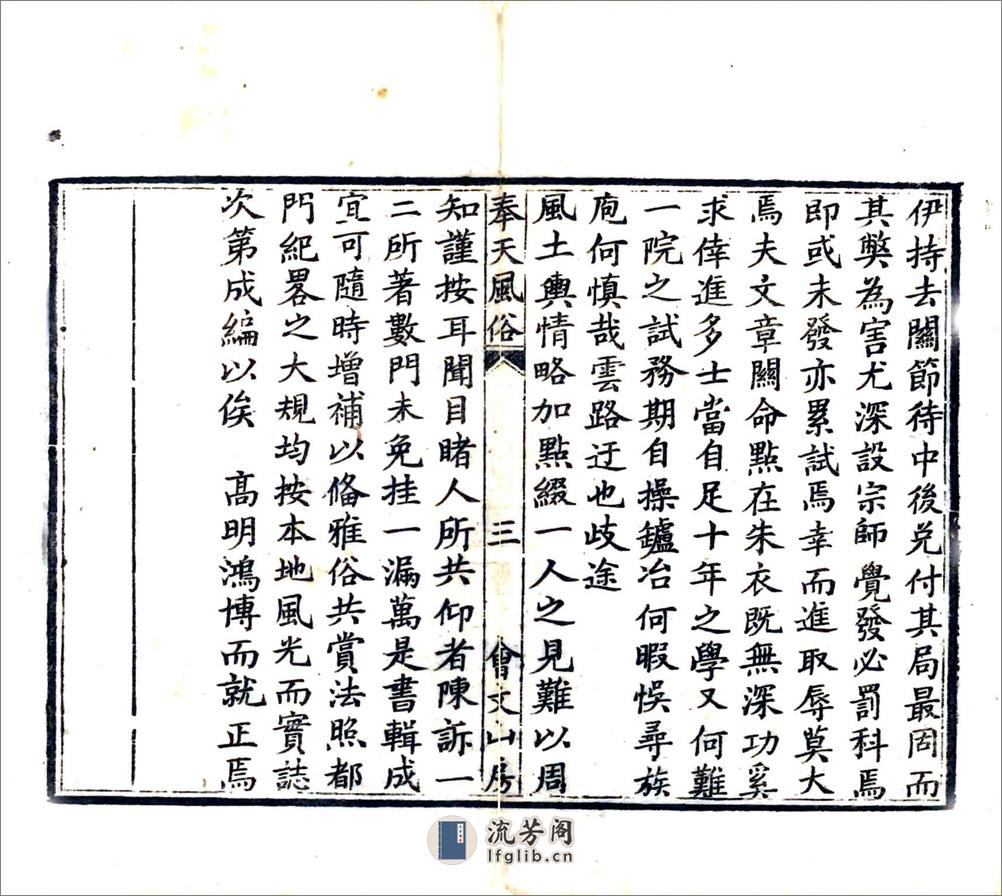 伊持去關節待中後兑付其局最固而
其獘為害尤深設宗師覺發必罰科焉
即或未發亦累試焉幸而進取辱莫大
焉夫文章關命點在朱衣既無深功奚
求倖進多士當自足十年之學又何難
一院之試務期自操鑪冶何暇悮尋族
庖何慎哉雲路迂也歧途
風土輿情略加點綴一人之見難以周
奉天風俗 三 會文山房
知謹按耳聞目睹人所共仰者陳訴一
二所著數門未免挂一漏萬是書輯成
宜可隨時增補以俻雅俗共賞法照都
門紀畧之大規均按本地風光而實誌
次第成編以俟 高明鴻博而就正焉
流芳阁
lfglib.cn